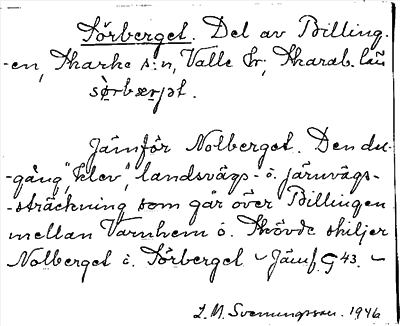 Sörberget. Del av Billing-
-en, Skarke s:n, Valle hr, Skarab. län
sö̀rbærjət.
Jämför Nolberget. Den du-
-gång, "klev", landsvägs- o. järnvägs-
-sträckning som går över Billingen
mellan Varnhem o. Skövde skiljer
Nolberget o. Sörberget – Jämf. G 43. –
L. M. Svenungsson. 1946